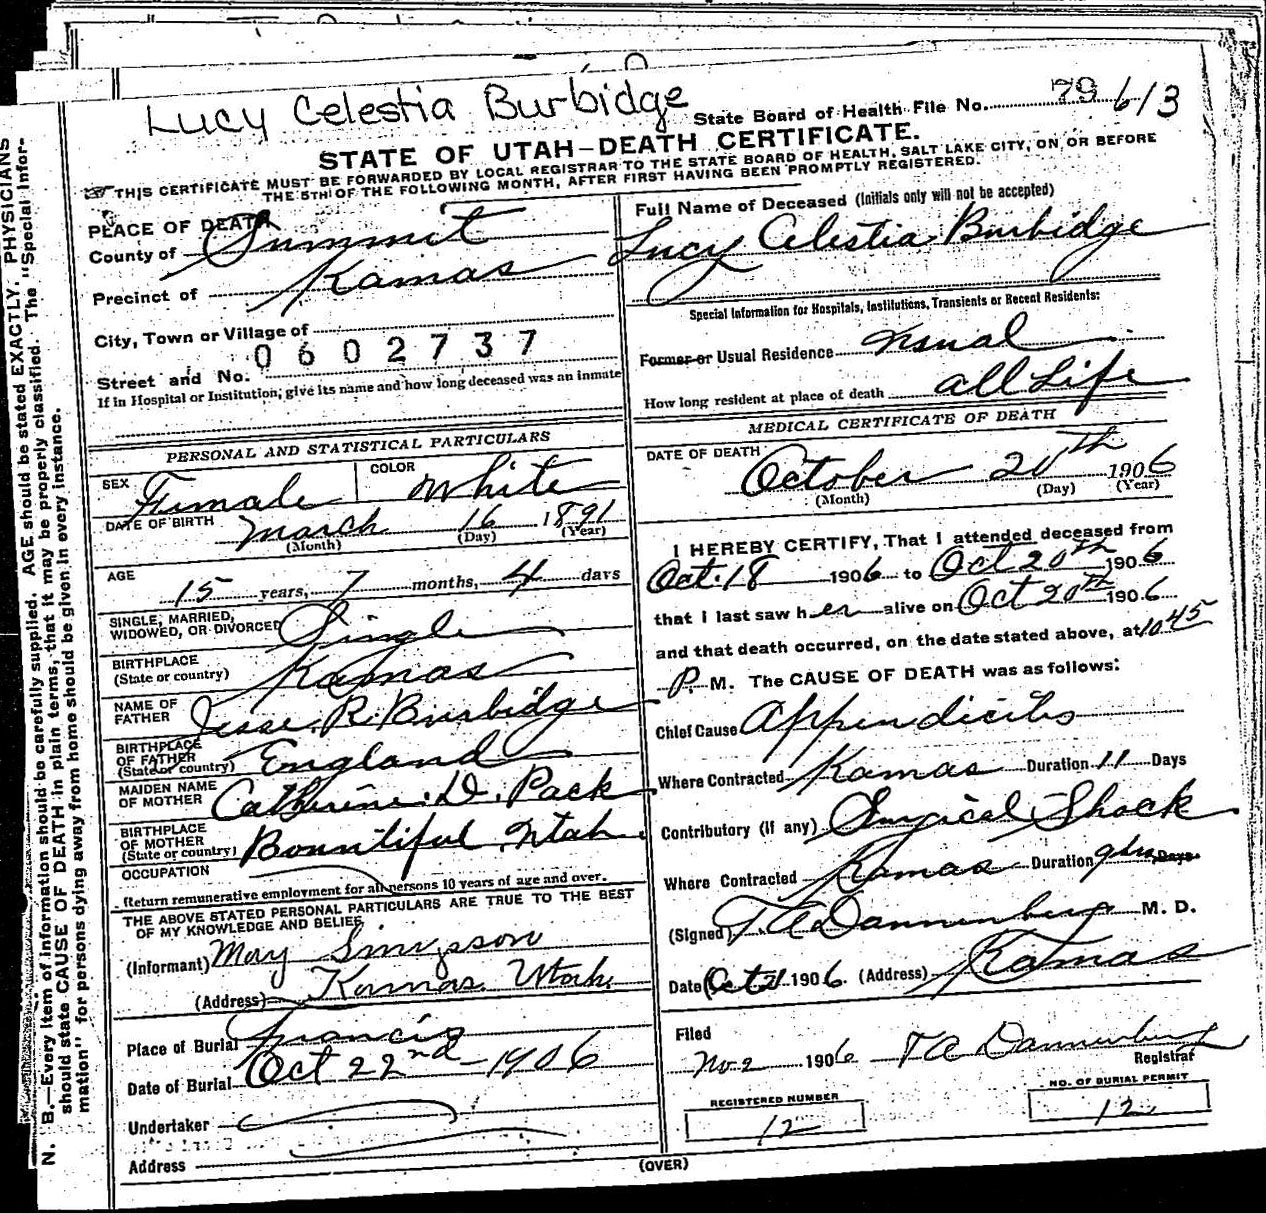 Lucy Celestia Burbidge
State Board of Health File No. 79 613
STATE OF UTAH—DEATH CERTIFICATE.
THIS CERTIFICATE MUST BE FORWARDED BY LOCAL REGISTRAR TO THE STATE BOARD OF HEALTH, SALT LAKE CITY, ON OR BEFORE
THE 5TH OF THE FOLLOWING MONTH, AFTER FIRST HAVING BEEN PROMPTLY REGISTERED.
PLACE OF DEATH
County of Summit
Precinct of Kamas
City, Town or Village of
0602737
Street and No.
If in Hospital or Institution, give its name and how long deceased was an inmate
PERSONAL AND STATISTICAL PARTICULARS
SEX Female COLOR White
DATE OF BIRTH March 16 1891
(Month) (Day) (Year)
AGE
15 years, 7 months, 4 days
SINGLE, MARRIED,
WIDOWED, OR DIVORCED Single
BIRTHPLACE
(State or country) Kamas
NAME OF
FATHER Jesse R. Burbidge
BIRTHPLACE
OF FATHER
(State or country) England
MAIDEN NAME
OF MOTHER Catherine D. Pack
BIRTHPLACE
OF MOTHER
(State or country) Bountiful Utah
OCCUPATION
(Return remunerative employment for all persons 10 years of age and over.
THE ABOVE STATED PERSONAL PARTICULARS ARE TRUE TO THE BEST
OF MY KNOWLEDGE AND BELIEF
(Informant) May Simpson
(Address) Kamas Utah.
Place of Burial Francis
Date of Burial Oct 22nd 1906
Undertaker
Address
Full Name of Deceased (Initials only will not be accepted)
Lucy Celestia Burbidge
Special Information for Hospitals, Institutions, Transients or Recent Residents:
Former or Usual Residence usual
How long resident at place of death all Life
MEDICAL CERTIFICATE OF DEATH
DATE OF DEATH October 20th 1906
(Month) (Day) (Year)
I HEREBY CERTIFY, That I attended deceased from
Oct. 18 1906 to Oct 20th 1906
that I last saw her alive on Oct 20th 1906.
and that death occurred, on the date stated above, at 10 45
P. M. The CAUSE OF DEATH was as follows:
Chief Cause Appendicitis
Where Contracted Kamas Duration 11 Days
Contributory (if any) Surgical Shock
Where Contracted Kamas Duration 9 hrs Days.
(Signed) T. A. Dannenberg M. D.
Date Oct 21 1906. (Address) Kamas
Filed
Nov 2 1906 T A Dannenberg
Registrar
REGISTERED NUMBER
12
NO. OF BURIAL PERMIT
12
(OVER)
N. B.—Every item of information should be carefully supplied. AGE should be stated EXACTLY. PHYSICIANS
should state CAUSE OF DEATH in plain terms, that it may be properly classified. The "Special Infor-
mation" for persons dying away from home should be given in every instance.